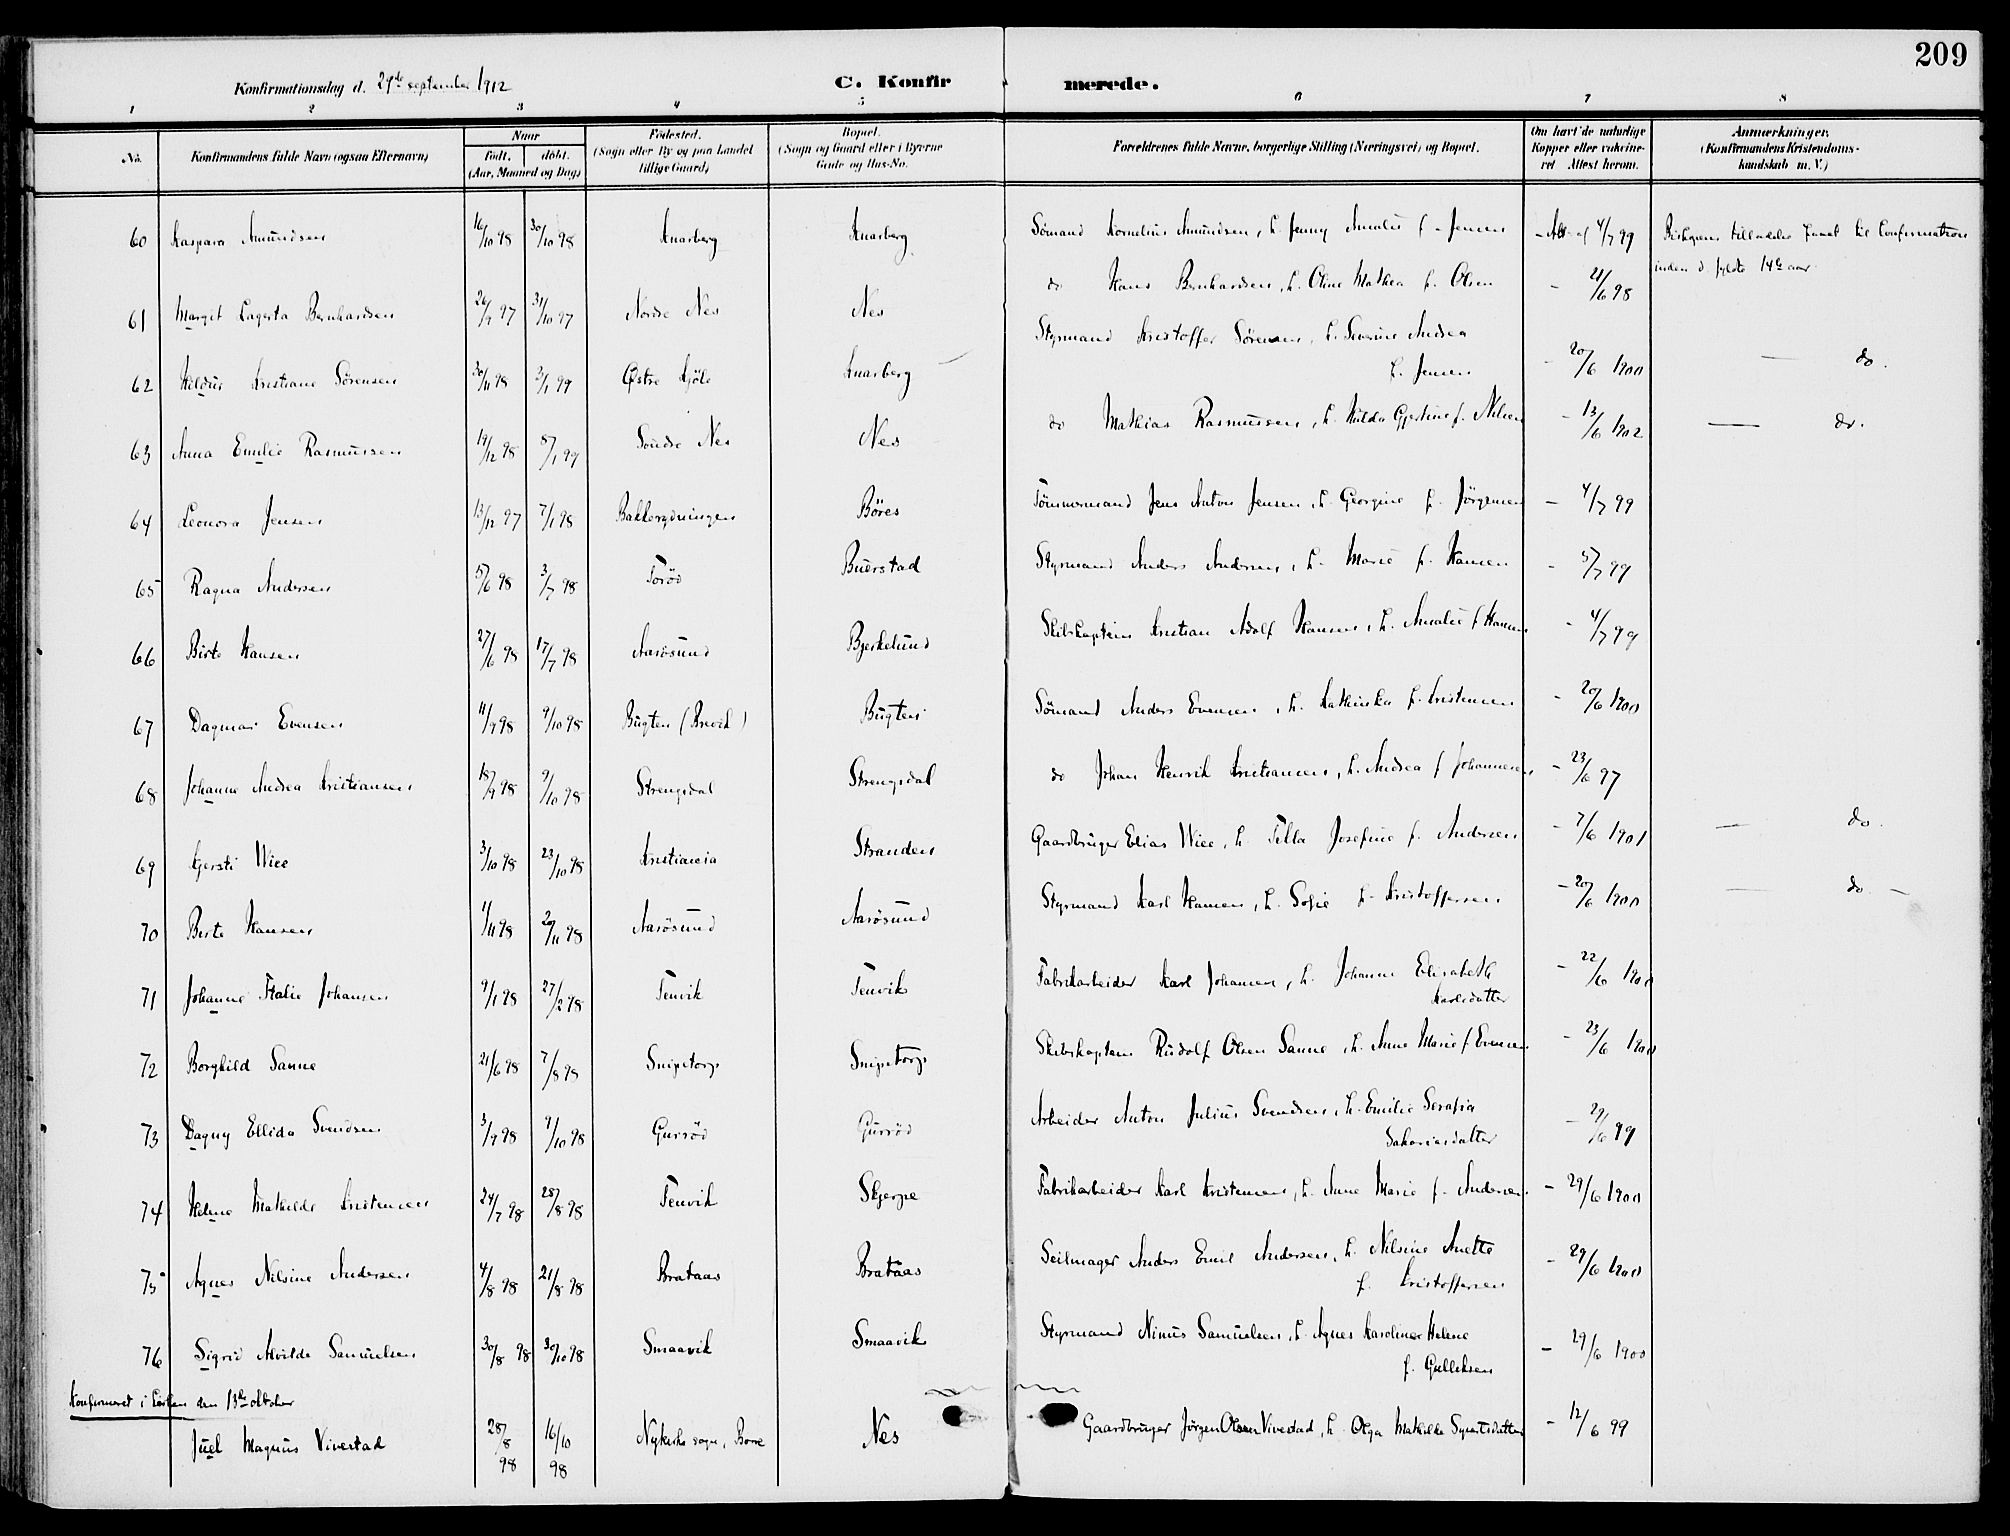 209
Konfirmationsdag d. 29de september 1912
C. Konfirmerede.
1 2 3 4 5 6 7 8
No. Konfirmandens fulde Navn (ogsaa Efternavn) Naar født, døbt. (Aar, Maaned og Dag) Födested. (Sogn eller By og paa Landet tillige Gaard) Bopæl. (Sogn og Gaard eller i Byerne Gade og Hus-No. Forældrenes fulde Navne, borgerlige Stilling (Næringsvei) og Bopæl. Om havt de naturlige Kopper eller vakcineret Attest herom. Anmærkninger. (Konfirmandens Kristendomskundskab m. V.)
60 Kaspara Amundsen 16/10 98 30/10 98 Knarberg Knarberg Sömand Kornelius Amundsen, h. Jenny Amalie f. Jensen - Att. af 4/7 99 Biskopens tilladelse til Confirmation
inden d. fyldte 14de aar.
61 Margit Lagerta Bernhardsen 26/9 97 31/10 97 Nordre Nes Nes do Hans Bernhardsen, h. Oline Mathea f. Olsen - 21/6 98
62 Hildur Kristiane Sörensen 30/11 98 3/1 99 Østre Kjöle Knarberg Styrmand Kristoffer Sörensen, h. Severine Andrea
f. Jensen - 20/6 1900 — do.
63 Anna Emilie Rasmussen 19/12 98 8/1 99 Söndre Nes Nes do Mathias Rasmussen, h. Hulda Gjertine f. Nilsen - 13/6 1902 — do.
64 Leonora Jensen 13/12 97 7/1 98 Bakkerydningen Böres Tömmermand Jens Anton Jensen, h. Georgine f. Jörgensen - 4/7 99
65 Ragna Andersen 5/6 98 3/7 98 Toröd Buerstad Styrmand Anders Andersen, h. Marie f. Hansen - 5/7 99
66 Birte Hansen 27/6 98 17/7 98 Aarösund Bjerkelund Skibskaptein Kristian Adolf Hansen, h. Amalie f Hansen - 4/7 99
67 Dagmar Evensen 11/9 98 9/10 98 Bugten (Brevik) Bugten Sömand Anders Evensen, h. Kathinka f. Kristensen - 20/6 1900
68 Johanne Andrea Kristiansen 18/9 98 9/10 98 Strengsdal Strengsdal do Johan Henrik Kristiansen, h. Andrea f Johannesen - 23/6 97
69 Kjersti Wiee 3/10 98 23/10 98 Kristiania Stranden Gaardbruger Elias Wiee, h. Tilla Josefine f. Andersen - 7/6 1901 — do.
70 Berte Hansen 1/11 98 20/11 98 Aarösund Aarösund Styrmand Karl Hansen, h. Sofie f. Kristoffersen - 20/6 1900 — do. -
71 Johanne Italie Johansen 9/1 98 27/2 98 Tenvik Tenvik Fabrikarbeider Karl Johansen, h. Johanne Elisabeth
Karlsdatter - 22/6 1900
72 Borghild Sanne 21/6 98 7/8 98 Snipetorp Snipetorp Skibskaptein Rudolf Olsen Sanne, h. Anne Marie f Evensen - 23/6 1900
73 Dagny Ellida Svendsen 3/9 98 9/10 98 Gurröd Gurröd Arbeider Anton Julius Svendsen, h. Emilie Serafia
Sakariasdatter - 29/6 99
74 Helene Mathilde Kristensen 24/7 98 28/8 98 Tenvik Skjerpe Fabrikarbeider Karl Kristensen, h. Anne Marie f. Andersen - 29/6 1900
75 Agnes Nilsine Andersen 4/8 98 21/8 98 Brataas Brataas Seilmager Anders Emil Andersen, h. Nilsine Anette
f. Kristoffersen - 29/6 1900
76 Sigrid Alvilde Samuelsen 30/8 98 30/10 98 Smaavik Smaavik Styrmand Ninus Samuelsen, h. Agnes Karoline Helene
f. Gulliksen - 29/6 1900
Konfirmeret i Kirken den 13de oktober
Juel Magnus Vivestad 28/8 98 16/10 98 Nykirke sogn, Borre Nes Gaardbruger Jörgen Olsen Vivestad, h. Olga Mathilde Syvertsdatter - 12/6 99